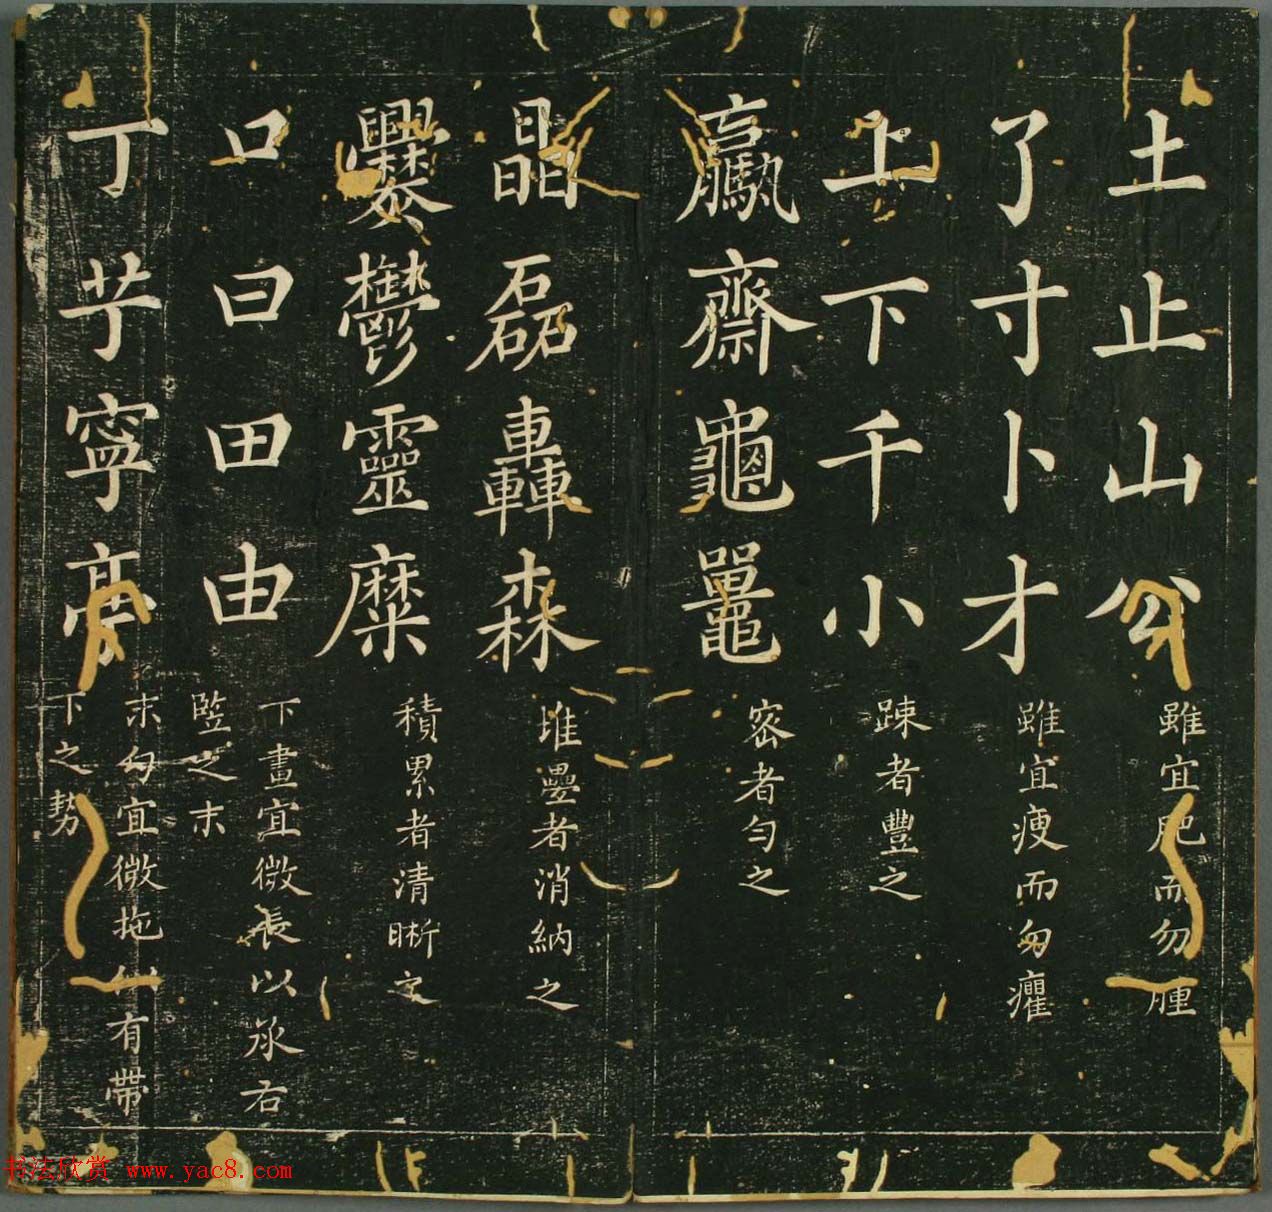 土止山公
雖宜肥而勿腫
了寸卜才
雖宜瘦而勿癯
上下千小
踈者豐之
羸齋龜鼉
密者勻之
晶磊轟森
堆疊者消納之
爨鬱靈糜
積累者清晰之
口曰田由
下畫宜微長以承右
竪之末
丁芓寧亭
末勾宜微拖以有帶
下之勢
书法欣赏 www.yac8.com